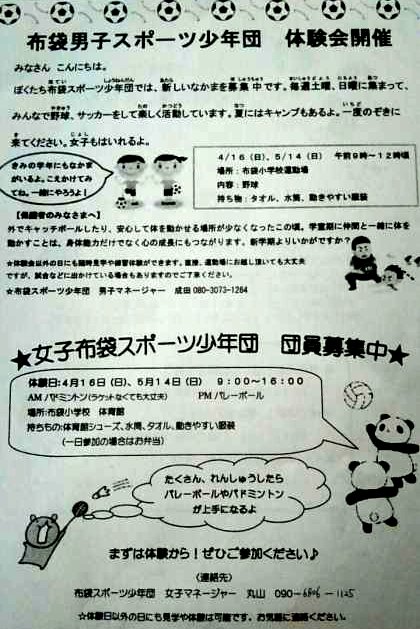 布袋男子スポーツ少年団　体験会開催
みなさん　こんにちは。
ぼくたち布袋スポーツ少年団では、新しいなかまを募集中です。毎週土曜、日曜に集まって、
みんなで野球、サッカーをして楽しく活動しています。夏にはキャンプもあるよ。一度のぞきに
来てください。女子もはいれるよ。
きみの学年にもなかま
がいるよ。こえかけてみ
てね。一緒にやろうよ！
4/16（日）、5/14（日）　午前9時～12時頃
場所：布袋小学校運動場
内容：野球
持ち物：タオル、水筒、動きやすい服装
【保護者のみなさまへ】
外でキャッチボールしたり、安心して体を動かせる場所が少なくなったこの頃。学童期に仲間と一緒に体を
動かすことは、身体能力だけでなく心の成長にもつながります。新学期よりいかがですか？
☆体験会以外の日にも随時見学や練習体験ができます。直接、運動場にお越し頂いても大丈夫
ですが、試合などに出かけている場合もありますのでご了承ください。
☆布袋スポーツ少年団　男子マネージャー　成田 080-3073-1284
★女子布袋スポーツ少年団　団員募集中★
体験日：4月16日（日）、5月14日（日）　9：00～16：00
AM バドミントン（ラケットなくても大丈夫）　PM バレーボール
場所：布袋小学校　体育館
持ちもの：体育館シューズ、水筒、タオル、動きやすい服装
（一日参加の場合はお弁当）
たくさん、れんしゅうしたら
バレーボールやバドミントン
が上手になるよ
まずは体験から！ぜひご参加ください♪
（連絡先）
布袋スポーツ少年団　女子マネージャー　丸山　090-6806-1125
☆体験日以外の日にも見学や体験は可能です。お気軽に連絡ください。